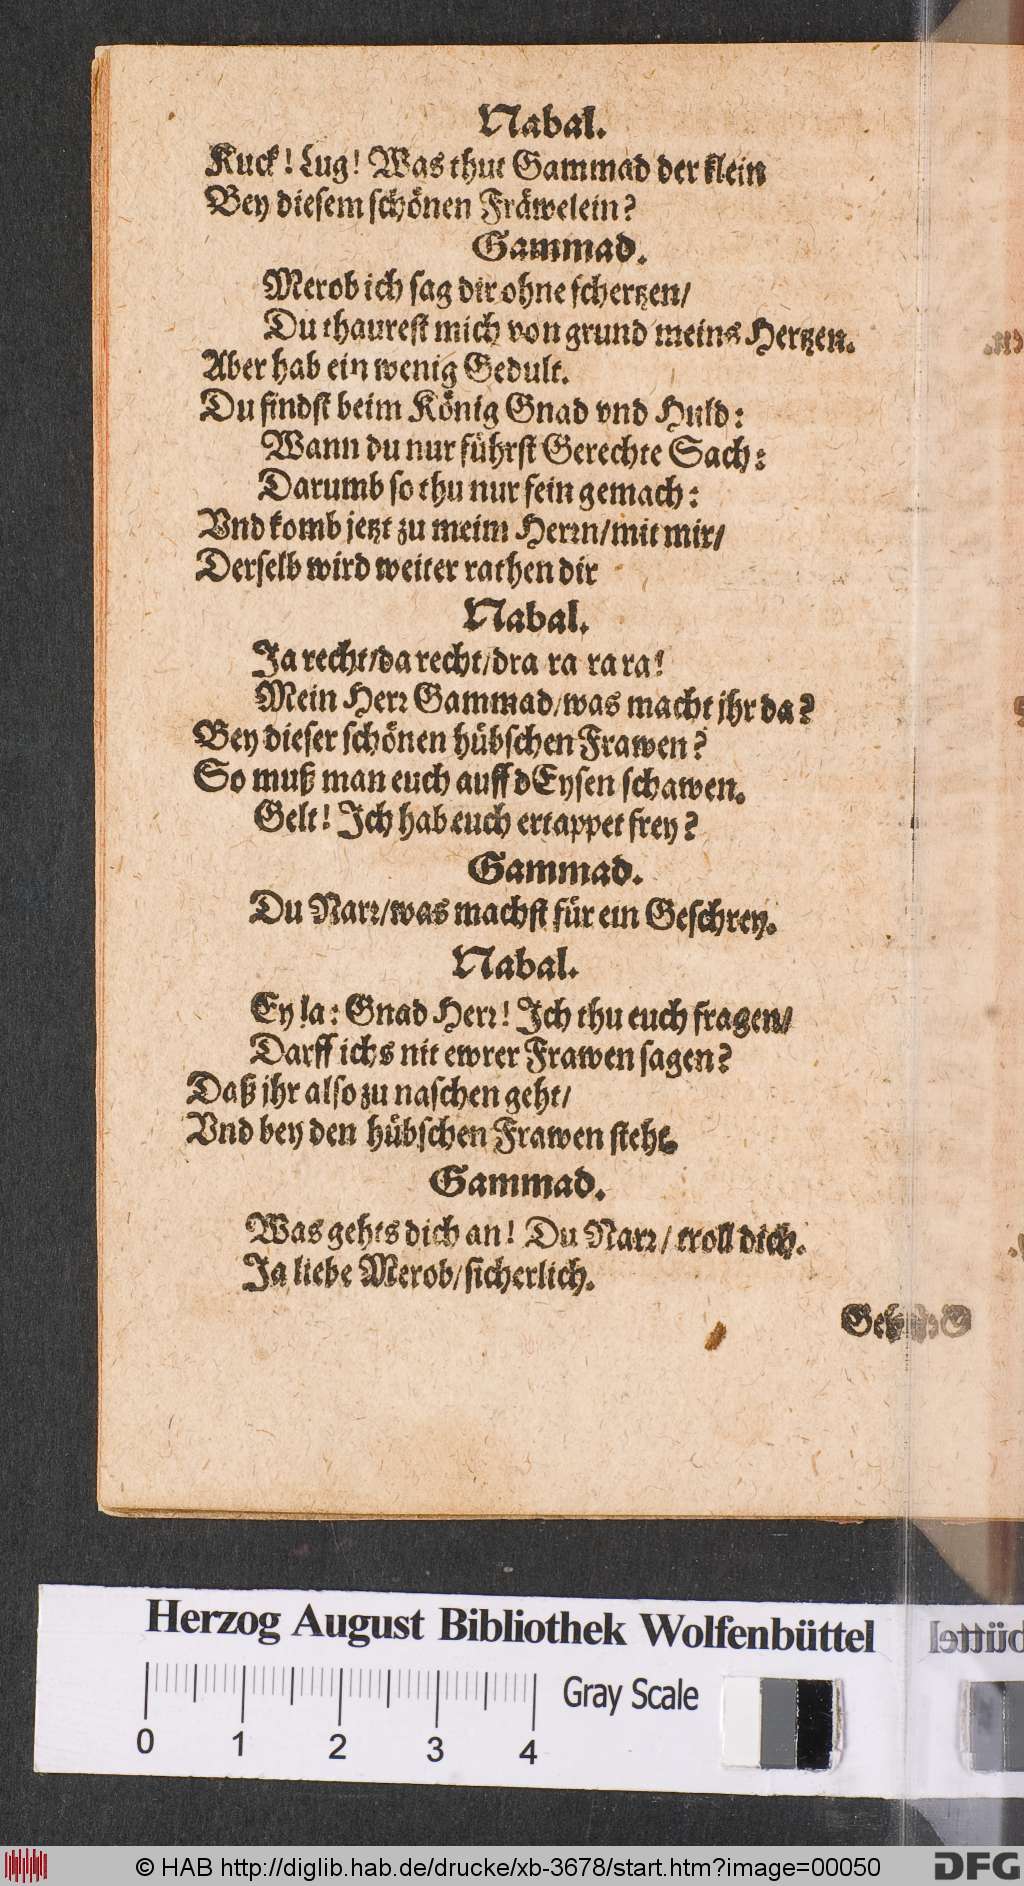 Nabal.
Kuck! Lug! Was thut Gammad der klein
Bey diesem schönen Fräwelein?
Gammad.
Merob ich sag dir ohne schertzen/
Du thaurest mich von grund meins Hertzen.
Aber hab ein wenig Gedult.
Du findst beim König Gnad vnd Huld:
Wann du nur führst Gerechte Sach:
Darumb so thu nur fein gemach:
Vnd komb jetzt zu meim Herrn/mit mir/
Derselb wird weiter rathen dir
Nabal.
Ja recht/da recht/dra ra ra ra!
Mein Herr Gammad/was macht jhr da?
Bey dieser schönen hübschen Frawen?
So muß man euch auff d Eysen schawen.
Gelt! Ich hab euch ertappet frey?
Gammad.
Du Narr/was machst für ein Geschrey.
Nabal.
Ey la: Gnad Herr! Ich thu euch fragen/
Darff ichs nit ewrer Frawen sagen?
Daß jhr also zu naschen geht/
Vnd bey den hübschen Frawen steht.
Gammad.
Was gehts dich an! Du Narr/ troll dich.
Ja liebe Merob/sicherlich.
Herzog August Bibliothek Wolfenbüttel
0 1 2 3 4
Gray Scale
© HAB http://diglib.hab.de/drucke/xb-3678/start.htm?image=00050
DFG